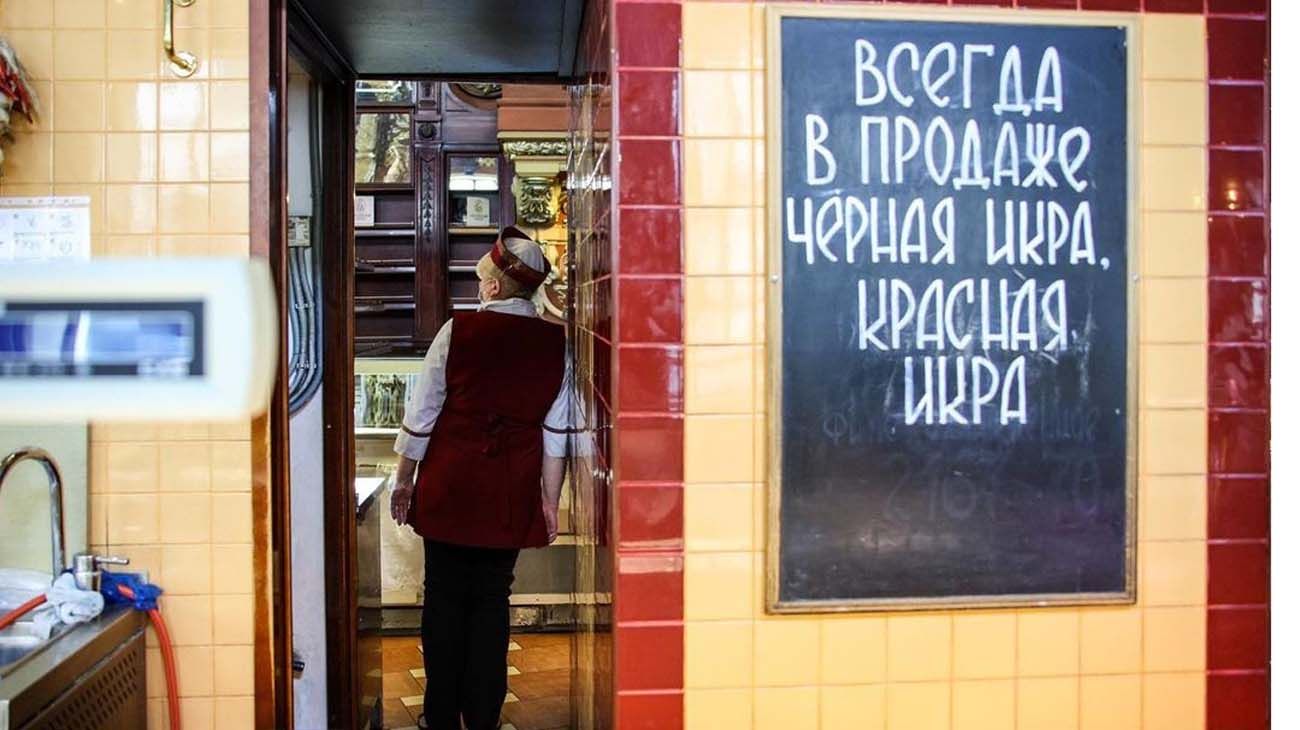 ВСЕГДА
В ПРОДАЖЕ
ЧЕРНАЯ ИКРА,
КРАСНАЯ
ИКРА